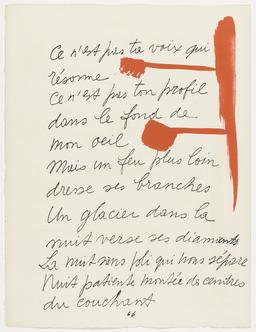 Ce n'est pas ta voix qui
résonne
Ce n'est pas ton profil
dans le fond de
mon oeil
Mais un feu plus loin
dresse ses branches
Un glacier dans la
nuit verse ses diamants
La nuit sans pli qui nous sépare
Nuit patiente montée de cendres
du couchant
66